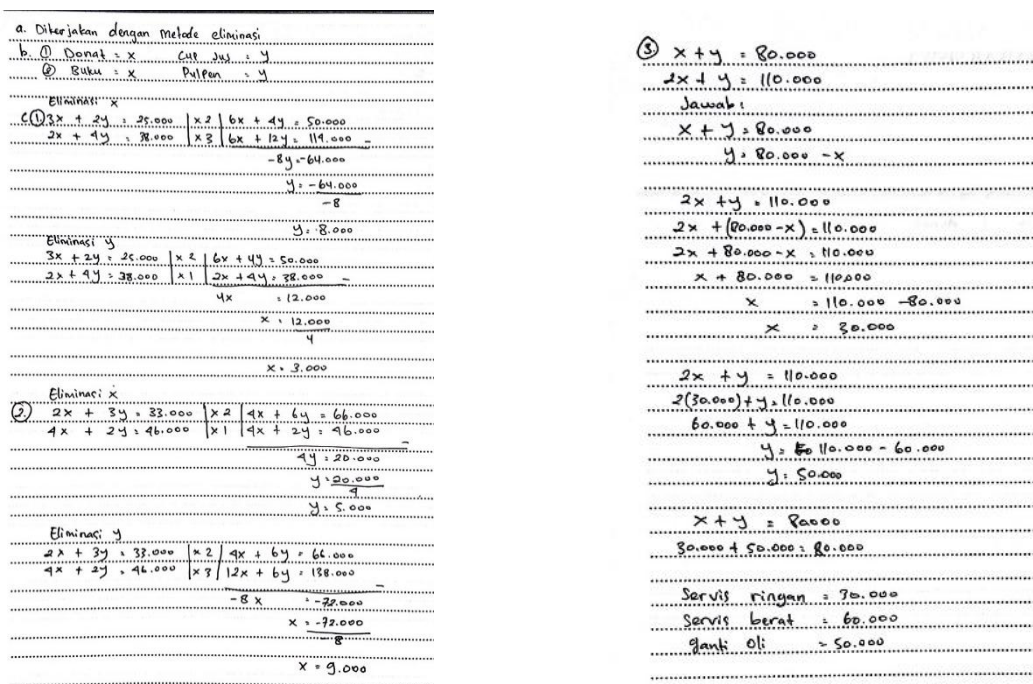 a. Dikerjakan dengan Metode eliminasi
b. ① Donat = x Cup Jus = y
② Buku = x Pulpen = y
Eliminasi x
c. ① 3x + 2y = 25.000 | x 2 | 6x + 4y = 50.000
2x + 4y = 38.000 | x 3 | 6x + 12y = 114.000 -
-8y = -64.000
y = -64.000
-8
y = 8.000
Eliminasi y
3x + 2y = 25.000 | x 2 | 6x + 4y = 50.000
2x + 4y = 38.000 | x 1 | 2x + 4y = 38.000 -
4x = 12.000
x = 12.000
4
x = 3.000
Eliminasi x
② 2x + 3y = 33.000 | x 2 | 4x + 6y = 66.000
4x + 2y = 46.000 | x 1 | 4x + 2y = 46.000 -
4y = 20.000
y = 20.000
4
y = 5.000
Eliminasi y
2x + 3y = 33.000 | x 2 | 4x + 6y = 66.000
4x + 2y = 46.000 | x 3 | 12x + 6y = 138.000 -
-8x = -72.000
x = -72.000
-8
x = 9.000
③ x + y = 80.000
2x + y = 110.000
Jawab:
x + y = 80.000
y = 80.000 - x
2x + y = 110.000
2x + (80.000 - x) = 110.000
2x + 80.000 - x = 110.000
x + 80.000 = 110.000
x = 110.000 - 80.000
x = 30.000
2x + y = 110.000
2(30.000) + y = 110.000
60.000 + y = 110.000
y = 110.000 - 60.000
y = 50.000
x + y = 80000
30.000 + 50.000 = 80.000
Servis ringan = 30.000
Servis berat = 60.000
ganti oli = 50.000